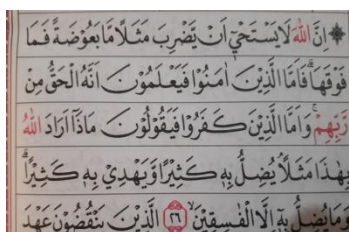 ۞ اِنَّ اللّٰهَ لَا يَسْتَحْيٖٓ اَنْ يَّضْرِبَ مَثَلًا مَّا بَعُوْضَةً فَمَا
فَوْقَهَا ؕ فَاَمَّا الَّذِيْنَ اٰمَنُوْا فَيَعْلَمُوْنَ اَنَّهُ الْحَقُّ مِنْ
رَّبِّهِمْ ۚ وَاَمَّا الَّذِيْنَ كَفَرُوْا فَيَقُوْلُوْنَ مَاذَاۤ اَرَادَ اللّٰهُ
بِهٰذَا مَثَلًا ۘ يُضِلُّ بِهٖ كَثِيْرًا وَّيَهْدِيْ بِهٖ كَثِيْرًا ؕ
وَمَا يُضِلُّ بِهٖۤ اِلَّا الْفٰسِقِيْنَ ۙ ﴿٢٦﴾ الَّذِيْنَ يَنْقُضُوْنَ عَهْدَ